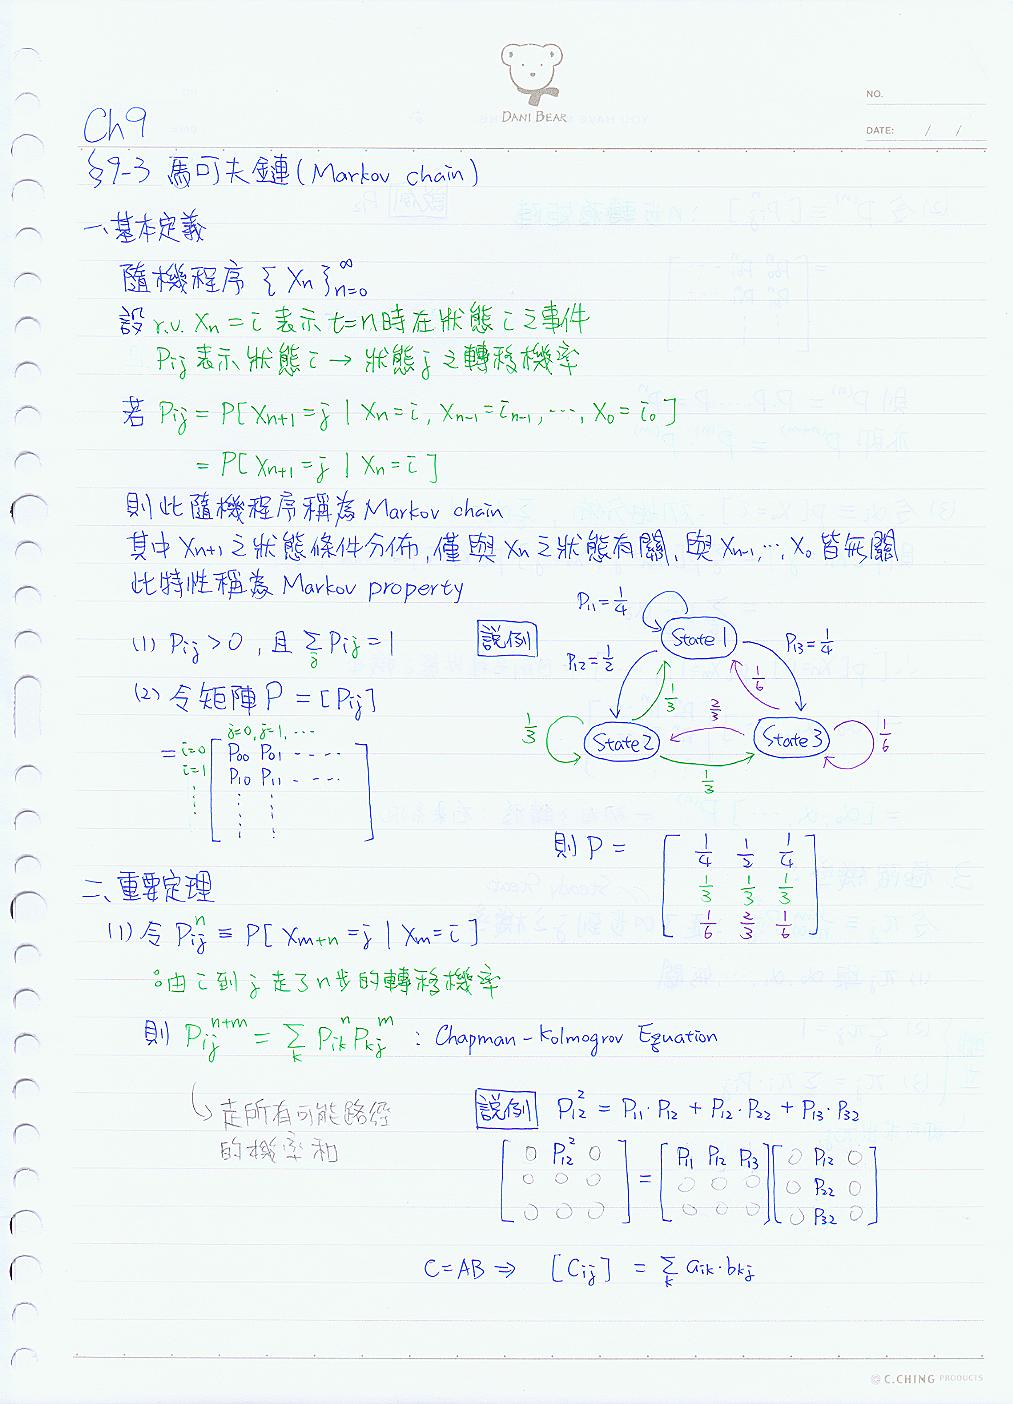 DANI BEAR
NO.
DATE: / /
Ch9
§9-3 馬可夫鏈(Markov chain)
一、基本定義
隨機程序 { Xn }∞n=0
設 r.v. Xn = i 表示 t=n時在狀態 i 之事件
Pij 表示狀態 i → 狀態 j 之轉移機率
若 Pij = P[ Xn+1 = j | Xn = i, Xn-1 = in-1, ..., X0 = i0 ]
= P[ Xn+1 = j | Xn = i ]
則此隨機程序稱為 Markov chain
其中 Xn+1 之狀態條件分佈,僅與 Xn 之狀態有關、與 Xn-1, ..., X0 皆無關
此特性稱為 Markov property
(1) Pij > 0 , 且 Σj Pij = 1
(2) 令矩陣 P = [Pij]
j=0, j=1, ...
i=0 = [ P00 P01 ----
i=1 P10 P11 ---- ]
說例
P11 = 1/4
State 1
P12 = 1/2
P13 = 1/4
1/3
1/6
2/3
1/3
State 2
State 3
1/6
1/3
則 P = [ 1/4 1/2 1/4
1/3 1/3 1/3
1/6 2/3 1/6 ]
二、重要定理
(1) 令 Pij^n ≡ P[ Xm+n = j | Xm = i ]
:由 i 到 j 走了 n 步的轉移機率
則 Pij^n+m = Σk Pik^n Pkj^m : Chapman-Kolmogrov Equation
↳ 走所有可能路徑
的機率和
說例 P12^2 = P11·P12 + P12·P22 + P13·P32
[ ○ P12^2 ○ ] = [ P11 P12 P13 ] [ ○ P12 ○ ]
[ ○ ○ ○ ] [ ○ ○ ○ ] [ ○ P22 ○ ]
[ ○ ○ ○ ] [ ○ ○ ○ ] [ ○ P32 ○ ]
C=AB ⇒ [Cij] = Σk aik·bkj
C.CHING PRODUCTS